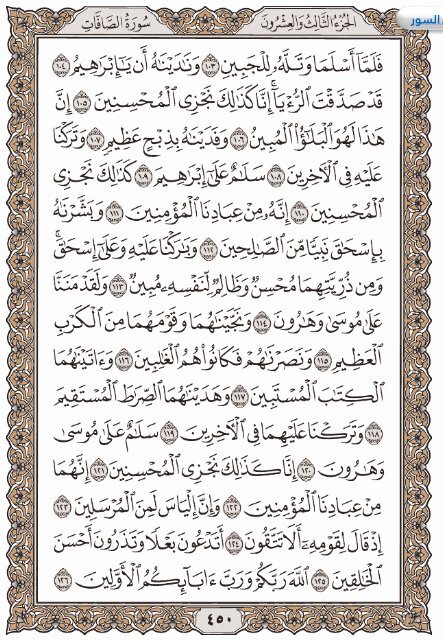 السور
الجزء الثالث والعشرون
سورة الصافات
فَلَمَّآ أَسْلَمَا وَتَلَّهُۥ لِلْجَبِينِ ١٠٣ وَنَٰدَيْنَٰهُ أَن يَٰٓإِبْرَٰهِيمُ ١٠٤
قَدْ صَدَّقْتَ ٱلرُّءْيَآ ۚ إِنَّا كَذَٰلِكَ نَجْزِى ٱلْمُحْسِنِينَ ١٠٥ إِنَّ
هَٰذَا لَهُوَ ٱلْبَلَٰٓؤُا۟ ٱلْمُبِينُ ١٠٦ وَفَدَيْنَٰهُ بِذِبْحٍ عَظِيمٍ ١٠٧ وَتَرَكْنَا
عَلَيْهِ فِى ٱلْءَاخِرِينَ ١٠٨ سَلَٰمٌ عَلَىٰٓ إِبْرَٰهِيمَ ١٠٩ كَذَٰلِكَ نَجْزِى
ٱلْمُحْسِنِينَ ١١٠ إِنَّهُۥ مِنْ عِبَادِنَا ٱلْمُؤْمِنِينَ ١١١ وَبَشَّرْنَٰهُ
بِإِسْحَٰقَ نَبِيًّا مِّنَ ٱلصَّٰلِحِينَ ١١٢ وَبَٰرَكْنَا عَلَيْهِ وَعَلَىٰٓ إِسْحَٰقَ ۚ
وَمِن ذُرِّيَّتِهِمَا مُحْسِنٌ وَظَالِمٌ لِّنَفْسِهِۦ مُبِينٌ ١١٣ وَلَقَدْ مَنَنَّا
عَلَىٰ مُوسَىٰ وَهَٰرُونَ ١١٤ وَنَجَّيْنَٰهُمَا وَقَوْمَهُمَا مِنَ ٱلْكَرْبِ
ٱلْعَظِيمِ ١١٥ وَنَصَرْنَٰهُمْ فَكَانُوا۟ هُمُ ٱلْغَٰلِبِينَ ١١٦ وَءَاتَيْنَٰهُمَا
ٱلْكِتَٰبَ ٱلْمُسْتَبِينَ ١١٧ وَهَدَيْنَٰهُمَا ٱلصِّرَٰطَ ٱلْمُسْتَقِيمَ
١١٨ وَتَرَكْنَا عَلَيْهِمَا فِى ٱلْءَاخِرِينَ ١١٩ سَلَٰمٌ عَلَىٰ مُوسَىٰ
وَهَٰرُونَ ١٢٠ إِنَّا كَذَٰلِكَ نَجْزِى ٱلْمُحْسِنِينَ ١٢١ إِنَّهُمَا
مِنْ عِبَادِنَا ٱلْمُؤْمِنِينَ ١٢٢ وَإِنَّ إِلْيَاسَ لَمِنَ ٱلْمُرْسَلِينَ ١٢٣
إِذْ قَالَ لِقَوْمِهِۦٓ أَلَا تَتَّقُونَ ١٢٤ أَتَدْعُونَ بَعْلًا وَتَذَرُونَ أَحْسَنَ
ٱلْخَٰلِقِينَ ١٢٥ ٱللَّهَ رَبَّكُمْ وَرَبَّ ءَابَآئِكُمُ ٱلْأَوَّلِينَ ١٢٦
٤٥٠